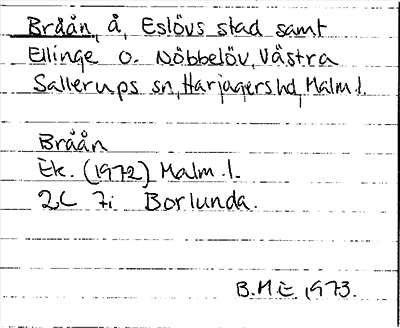 Bråån, å, Eslövs stad samt
Ellinge o. Nöbbelöv, Västra
Sallerups sn, Harjagers hd, Malm.l.
Bråån
Ek. (1972) Malm.l.
2C 7i Borlunda.
B.M.E. 1973.